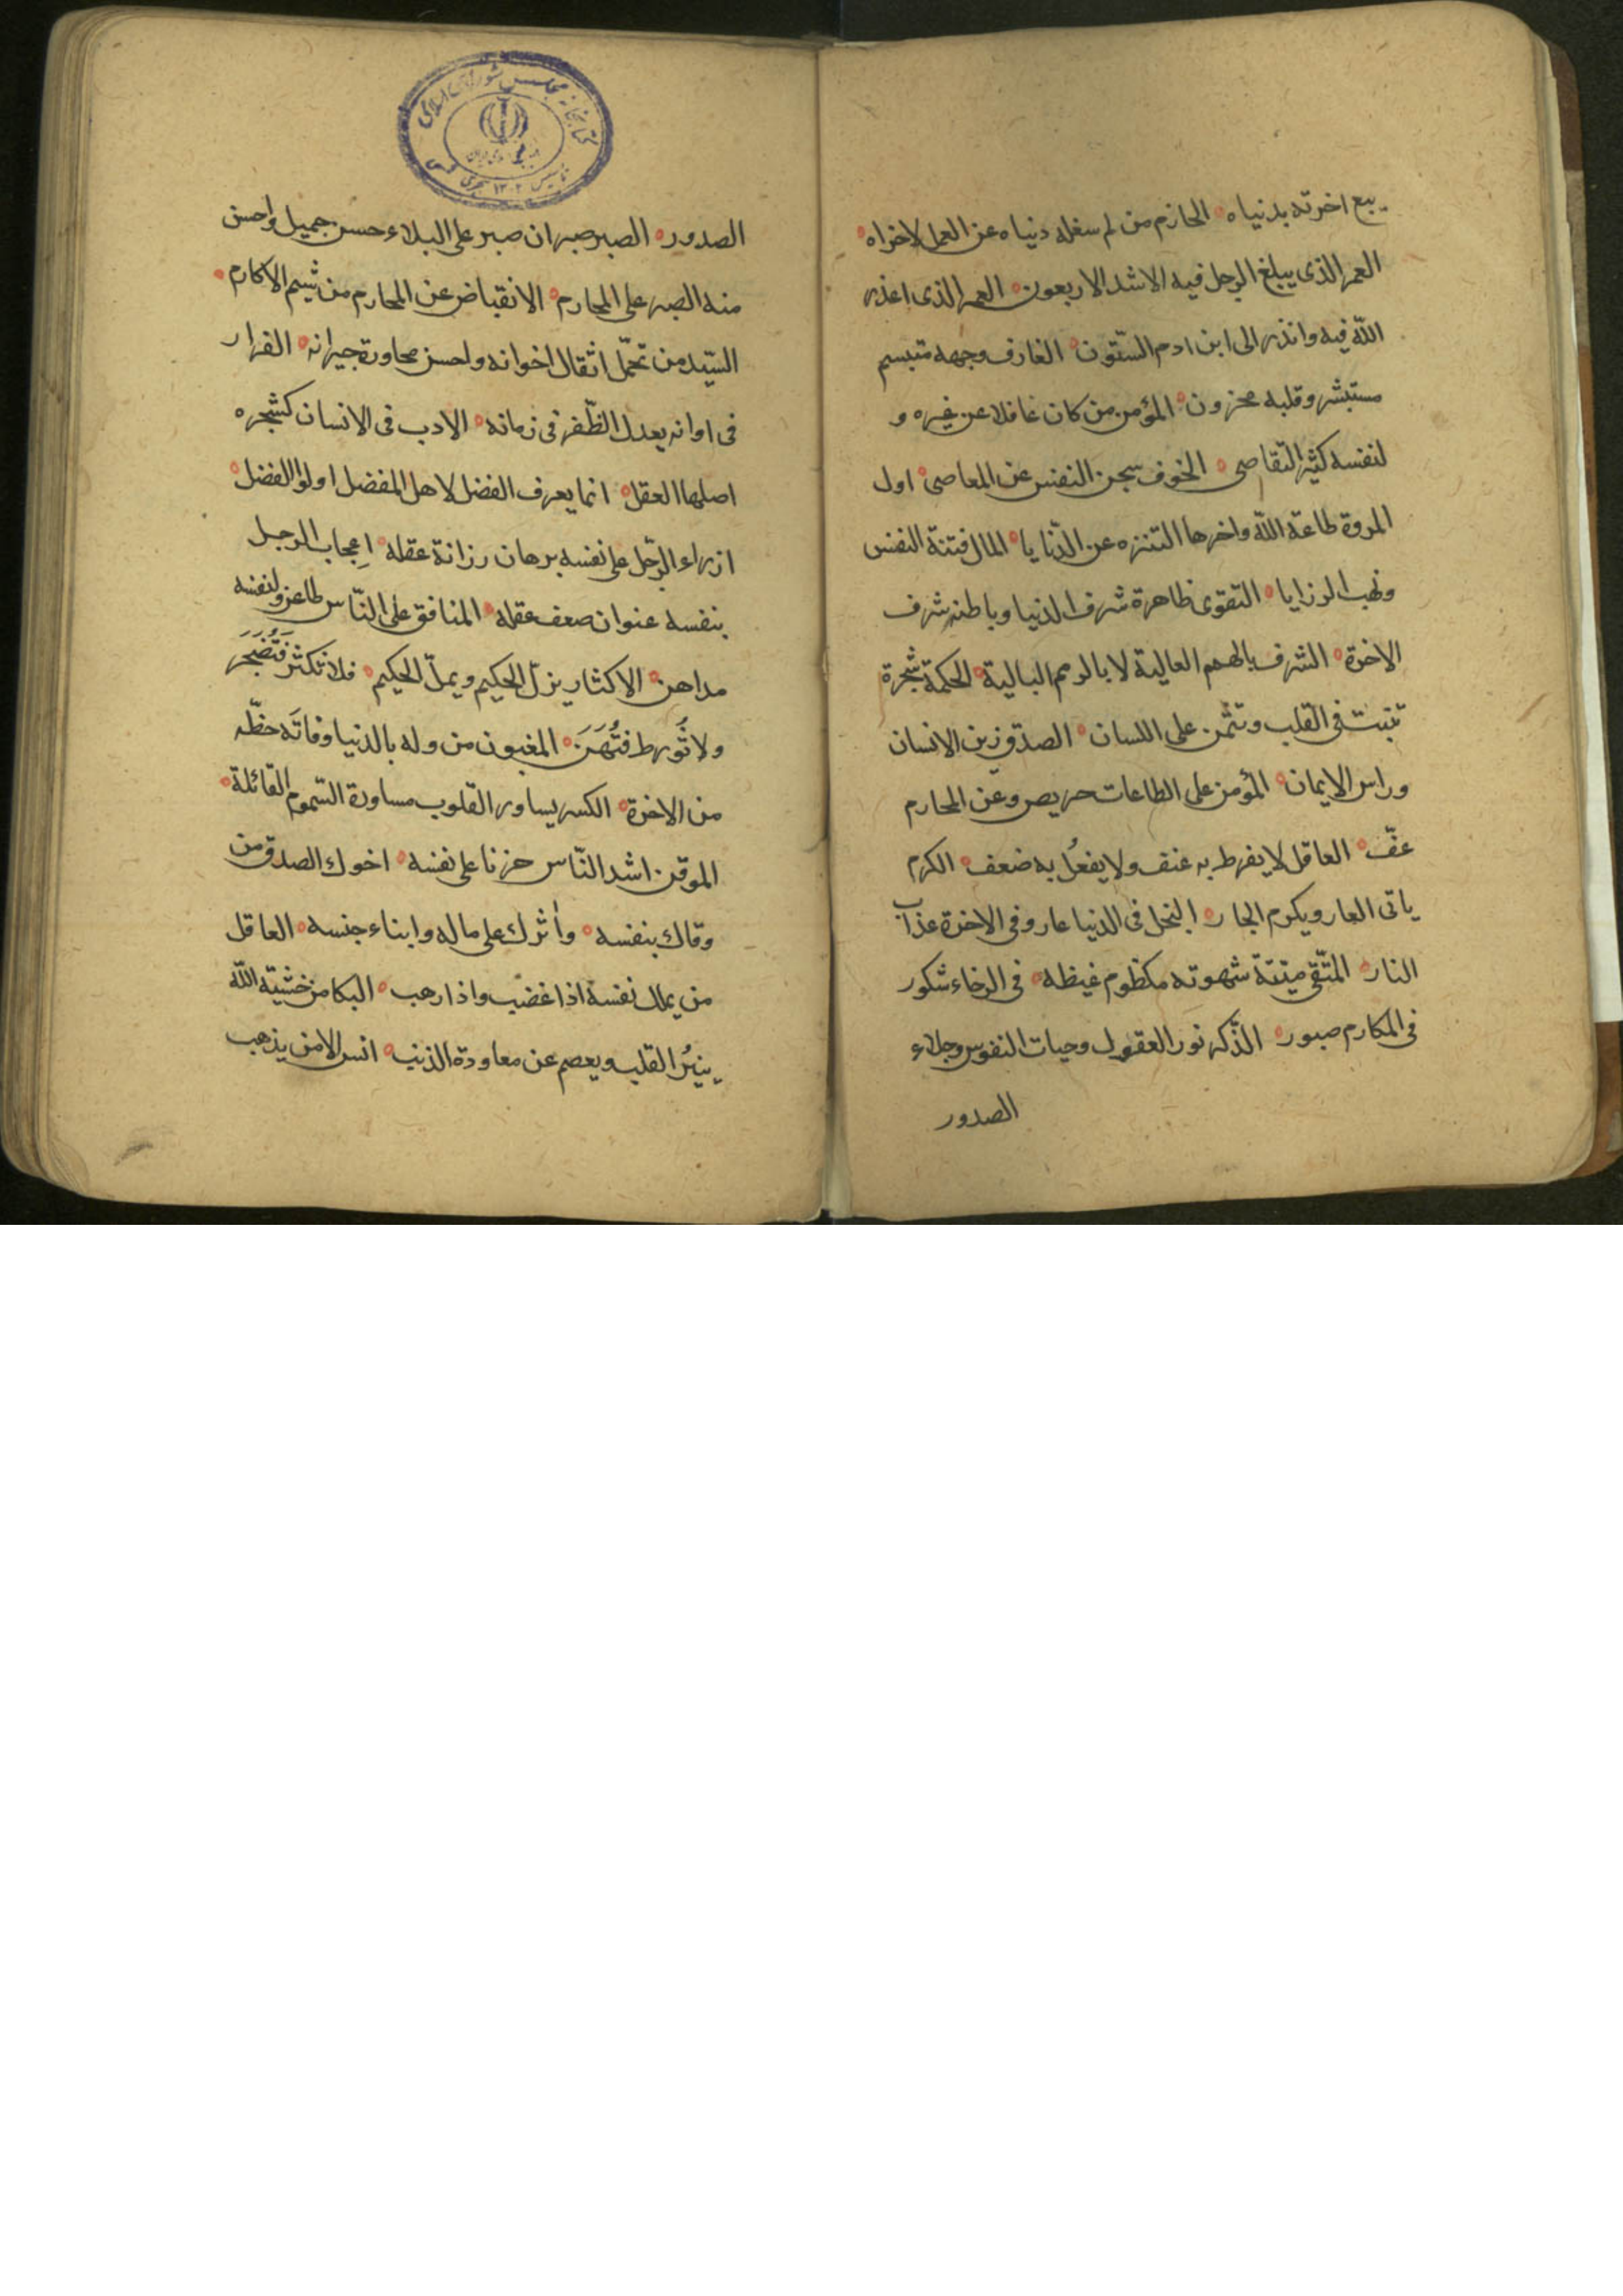 يبع اخرته بدنياه الحازم من لم سغله دنياه عن العمل لاخراه
العمر الذى يبلغ الرجل فيه الاشد الاربعون العمر الذى اعذر
الله فيه وانذر الى ابن ادم الستّون العارف وجهه متبسم
مستبشر وقلبه محزون المؤمن من كان غافلا عن غيره و
لنفسه كثير التقاصى الخوف سجن النفس عن المعاصى اول
المروة طاعة الله واخرها التنزه عن الدّنايا المال فتنة النفس
ونهب الرزايا التقوى ظاهرة شرف الدنيا وباطنه شرف
الاخرة الشرف بالهمم العالية لا بالرمم البالية الحكمة شجرة
تنبت فى القلب وتثمر على اللسان الصدق زين الانسان
وراس الايمان المؤمن على الطاعات حريص وعن المحارم
عفّ العاقل لا يفرط به عنف ولا يفعُل به ضعف الكرم
ياتى العار ويكرم الجار البخل فى الدنيا عار وفى الاخرة عذاب
النار المتّقى ميتة شهوته مكظوم غيظه فى الرخاء شكور
فى المكارم صبور الذّكر نور العقول وحيات النفوس وجلاء
الصدور
كتابخانه مجلس شوراى اسلامى
تاسيس ۱۳۰۲ هجرى شمسى
الصدور الصبر صبران صبر على البلاء حسن جميل واحسن
منه الصبر على المحارم الانقباض عن المحارم من شيم الاكارم
السّيد من تحمّل اثقال اخوانه واحسن محاورة جيرانه الفرار
فى اوانه يعدل الظّفر فى زمانه الادب فى الانسان كشجره
اصلها العقل انما يعرف الفضل لاهل المفضل اولوا الفضل
ازراء الرّجل على نفسه برهان رزانة عقله اِعجاب الرجل
بنفسه عنوان صعف عقله المنافق على النّاس طاعن ولنفسه
مداهن الاكثار يزلّ الحكيم ويملّ الحكيم فلا تكثر فَتُضجَرَ
ولا تُورط فتُهَنَ المغبون من وله بالدنيا وفاتَه حظّه
من الاخرة الكسر يساور القلوب مساورة السّموم القائلة
الموقن اشد النّاس حزنا على نفسه اخوك الصدق من
وقاك بنفسه واٰثرك على ماله وابناء جنسه العاقل
من يملك نفسه اذا غضب واذا رهب البكا من خشية الله
ينيرُ القلب ويعصم عن معاودة الذنب انس الامن يذهب